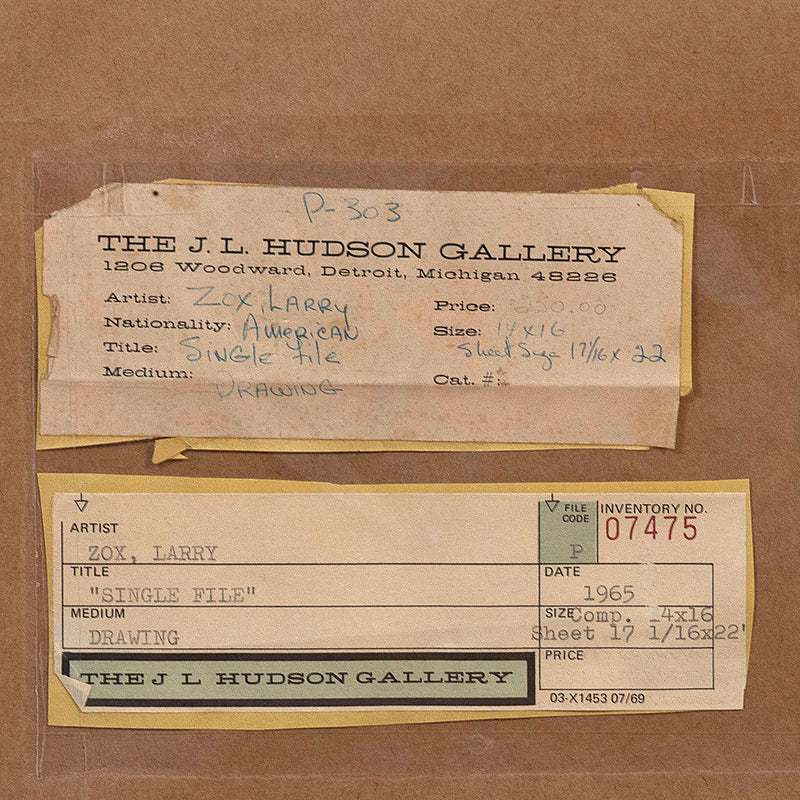 P-303
THE J. L. HUDSON GALLERY
1206 Woodward, Detroit, Michigan 48226
Artist: Zox, Larry
Price: 250.00
Nationality: American
Size: 14x16
Title: Single File
Sheet Size 17 1/16 x 22
Medium: Drawing
Cat. #:
ARTIST
ZOX, LARRY
FILE CODE
P
INVENTORY NO.
07475
TITLE
"SINGLE FILE"
DATE
1965
MEDIUM
DRAWING
SIZE Comp. 14x16
Sheet 17 1/16x22'
THE J L HUDSON GALLERY
PRICE
03-X1453 07/69